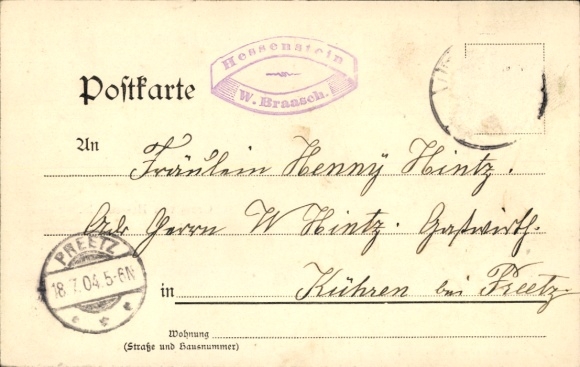 Hessenstein
W. Braasch.
Postkarte
An
Fräulein Henny Hintz.
Adr Herrn W Hintz. Gastwirth.
PREETZ
18.7.04.5-6N
in
Kühren bei Preetz
Wohnung
(Straße und Hausnummer)